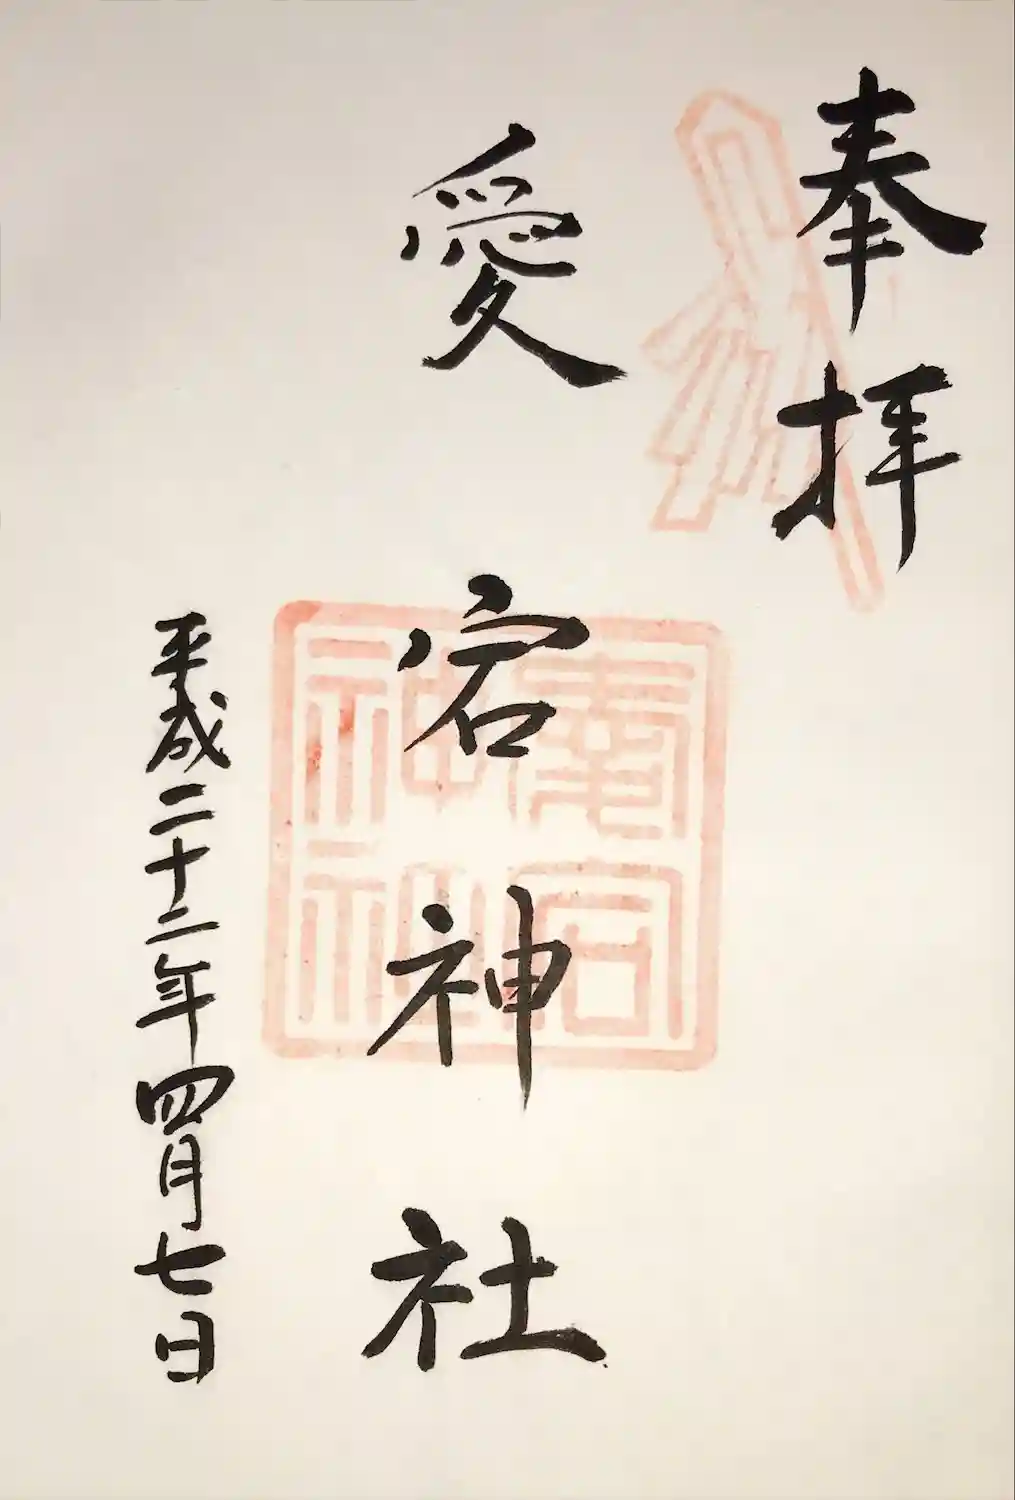 奉拝
愛宕神社
愛宕神社
平成二十二年四月七日